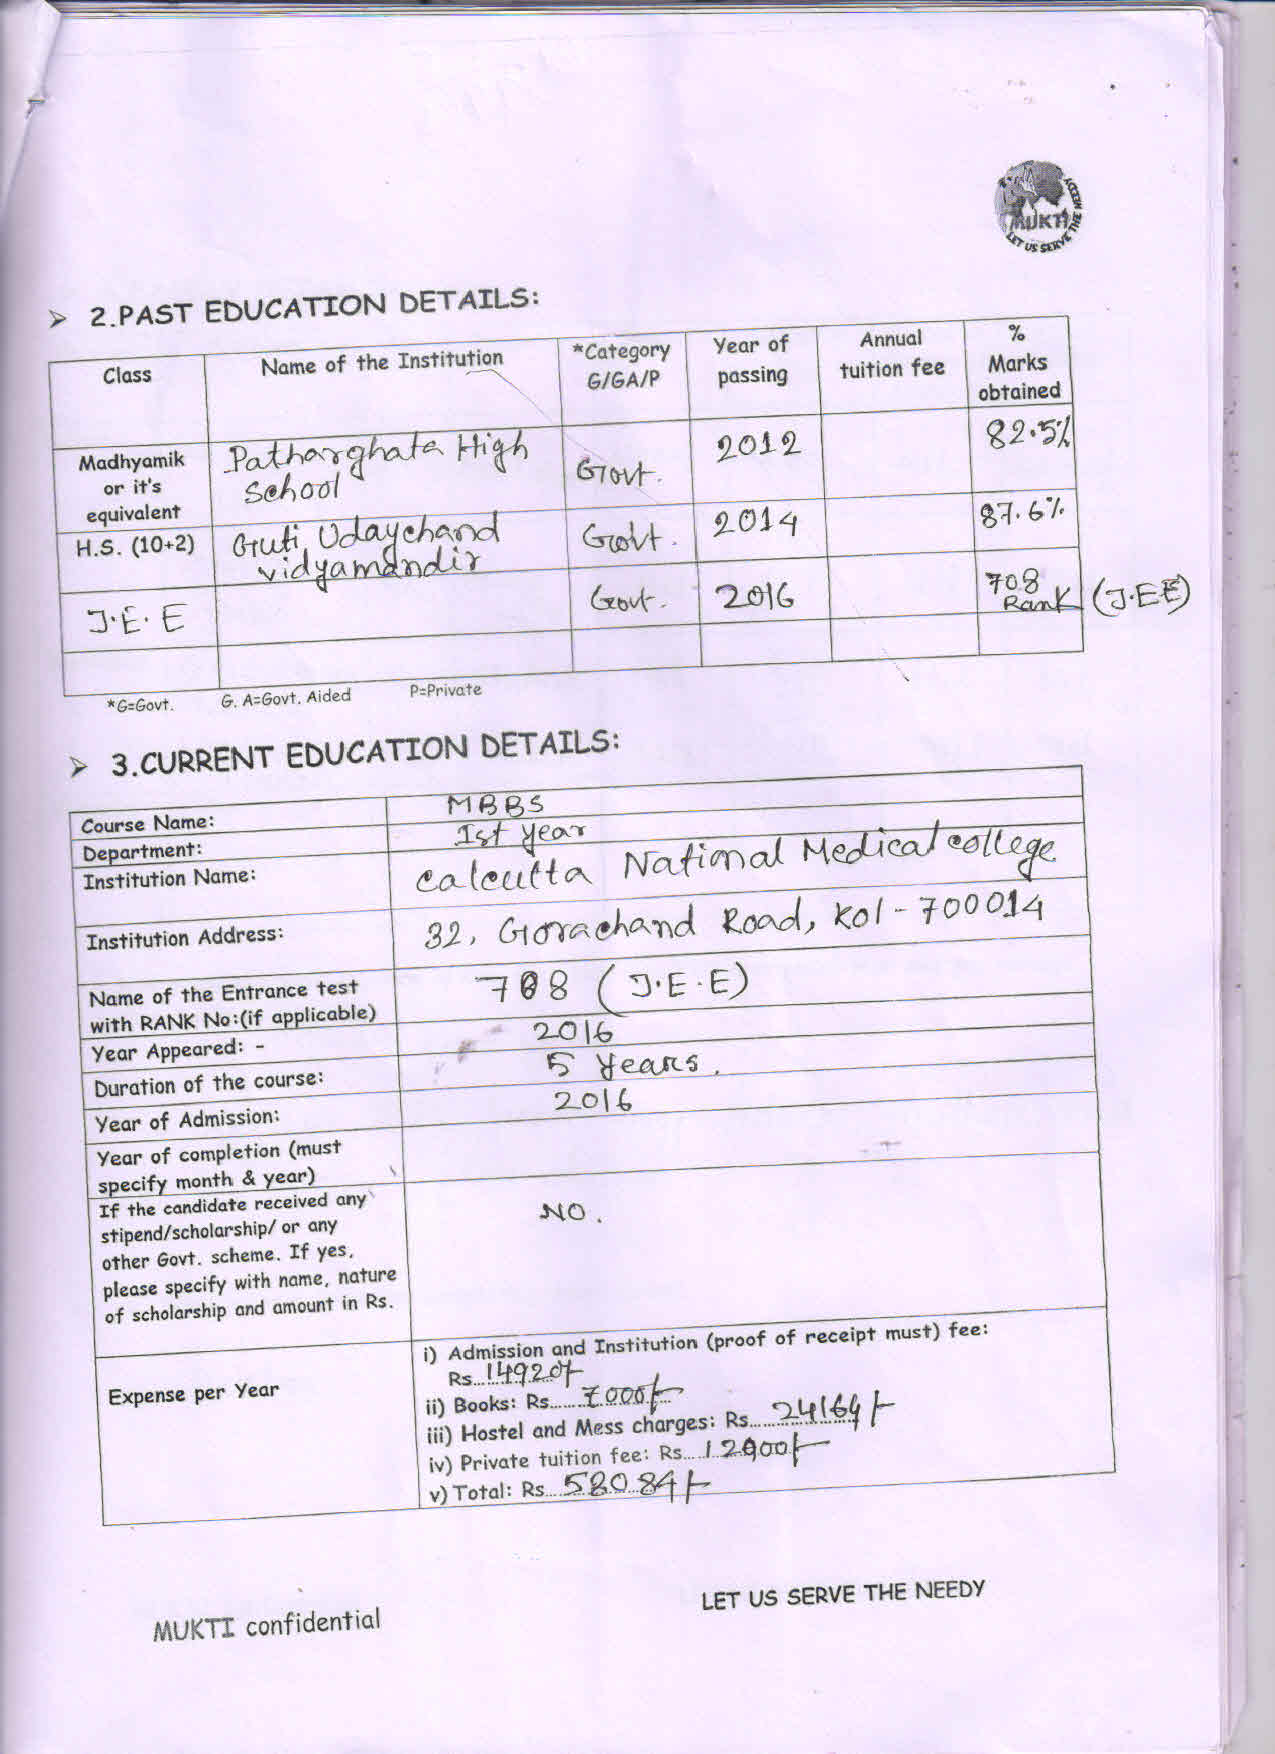 MUKTI
LET US SERVE THE NEEDY
➢ 2.PAST EDUCATION DETAILS:
Class Name of the Institution *Category G/GA/P Year of passing Annual tuition fee % Marks obtained
Madhyamik or it's equivalent Patharghata High School Govt. 2012 82.5%
H.S. (10+2) Guti Udaychand vidyamandir Govt. 2014 87.6%
J.E.E Govt. 2016 708 Rank (J.EE)
*G=Govt. G. A=Govt. Aided P=Private
➢ 3.CURRENT EDUCATION DETAILS:
Course Name: MBBS
Department: Ist year
Institution Name: Calcutta National Medical college
Institution Address: 32, Gorachand Road, Kol - 700014
Name of the Entrance test
with RANK No:(if applicable) 708 (J.E.E)
Year Appeared: - 2016
Duration of the course: 5 Years.
Year of Admission: 2016
Year of completion (must
specify month & year)
If the candidate received any
stipend/scholarship/ or any NO.
other Govt. scheme. If yes,
please specify with name, nature
of scholarship and amount in Rs.
Expense per Year
i) Admission and Institution (proof of receipt must) fee:
Rs...14920/-
ii) Books: Rs.......7000/-
iii) Hostel and Mess charges: Rs....24164/-
iv) Private tuition fee: Rs....12000/-
v) Total: Rs...58084/-
MUKTI confidential LET US SERVE THE NEEDY